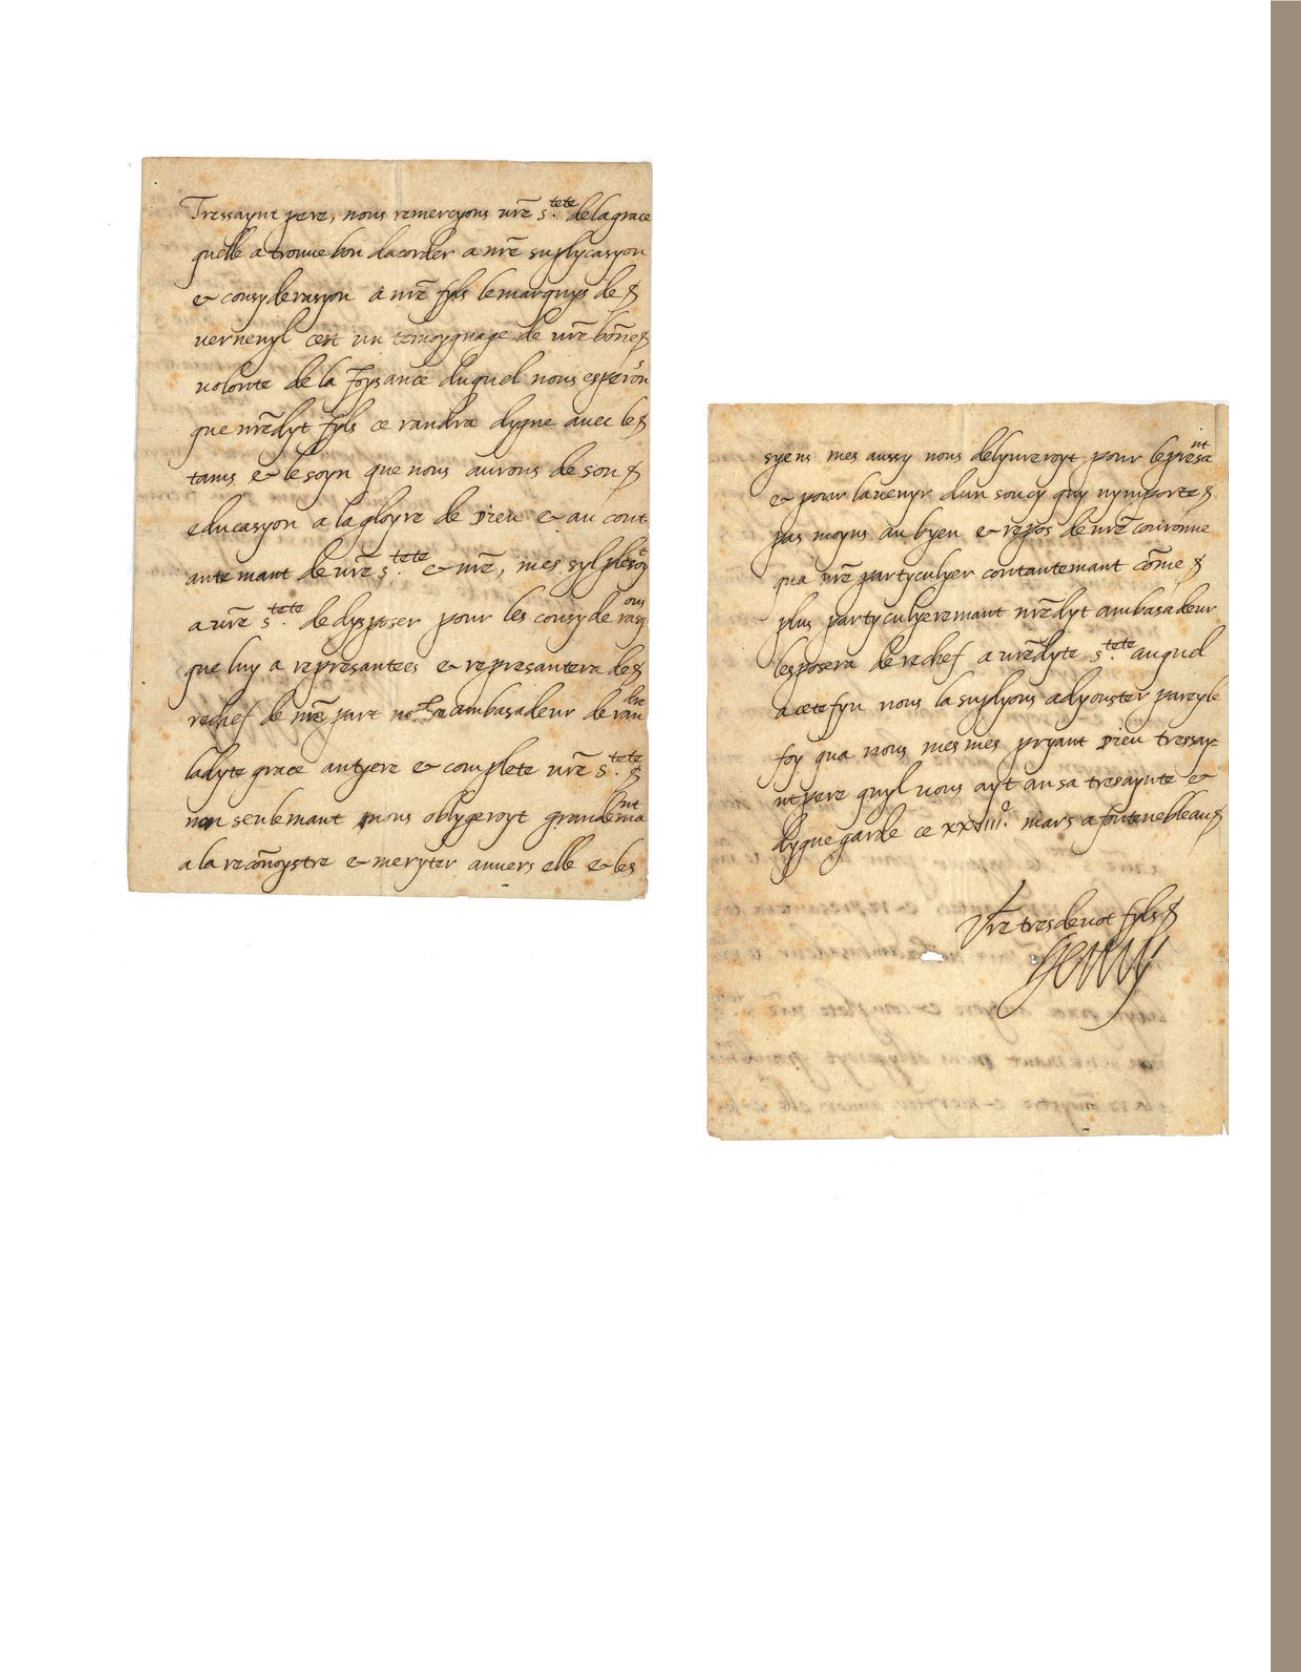 Tressaynt pere, nous remercyons vr̃e s.tete de la grace
quelle a trouue bon dacorder a nr̃e suplycasyon
& consyderasyon a nr̃e fyls le marquys de
verneuyl cest un temoygnage de vr̃e bõne
volonte de la joysance duquel nous esperõns
que nr̃edyt fyls ce randra dygne avec le
tams & le soyn que nous aurons de son
educasyon a la gloyre de Dieu & au cont
antemant de vr̃e s.tete & nr̃e, mes syl plesoyt
a vr̃e s.tete de dysposer pour les consyderasyons
que luy a represantees & represantera de
rechef de nr̃e part ambasadeur de randre
ladyte grace antyere & complete vr̃e s.tete
non seulemant nous oblygeroyt grandemant
a la recõnoystre & meryter anvers elle & les
syens mes aussy nous delyvreroyt pour le presant
& pour lavenyr dun soucy quy nymporte
pas moyns au byen & repos de nr̃e couronne
qua nr̃e partyculyer contantemant cõme
plus partyculyeremant nr̃edyt ambasadeur
lesposera de rechef a vr̃edyte s.tete auquel
a cete fyn nous la suplyons adyouster pareyle
foy qua nous mesmes pryant Dieu tressay
nt pere quyl vous ayt an sa tresaynte &
dygne garde ce xxviii.o mars a fontenebleau
Vr̃e tres devot fyls
Henry